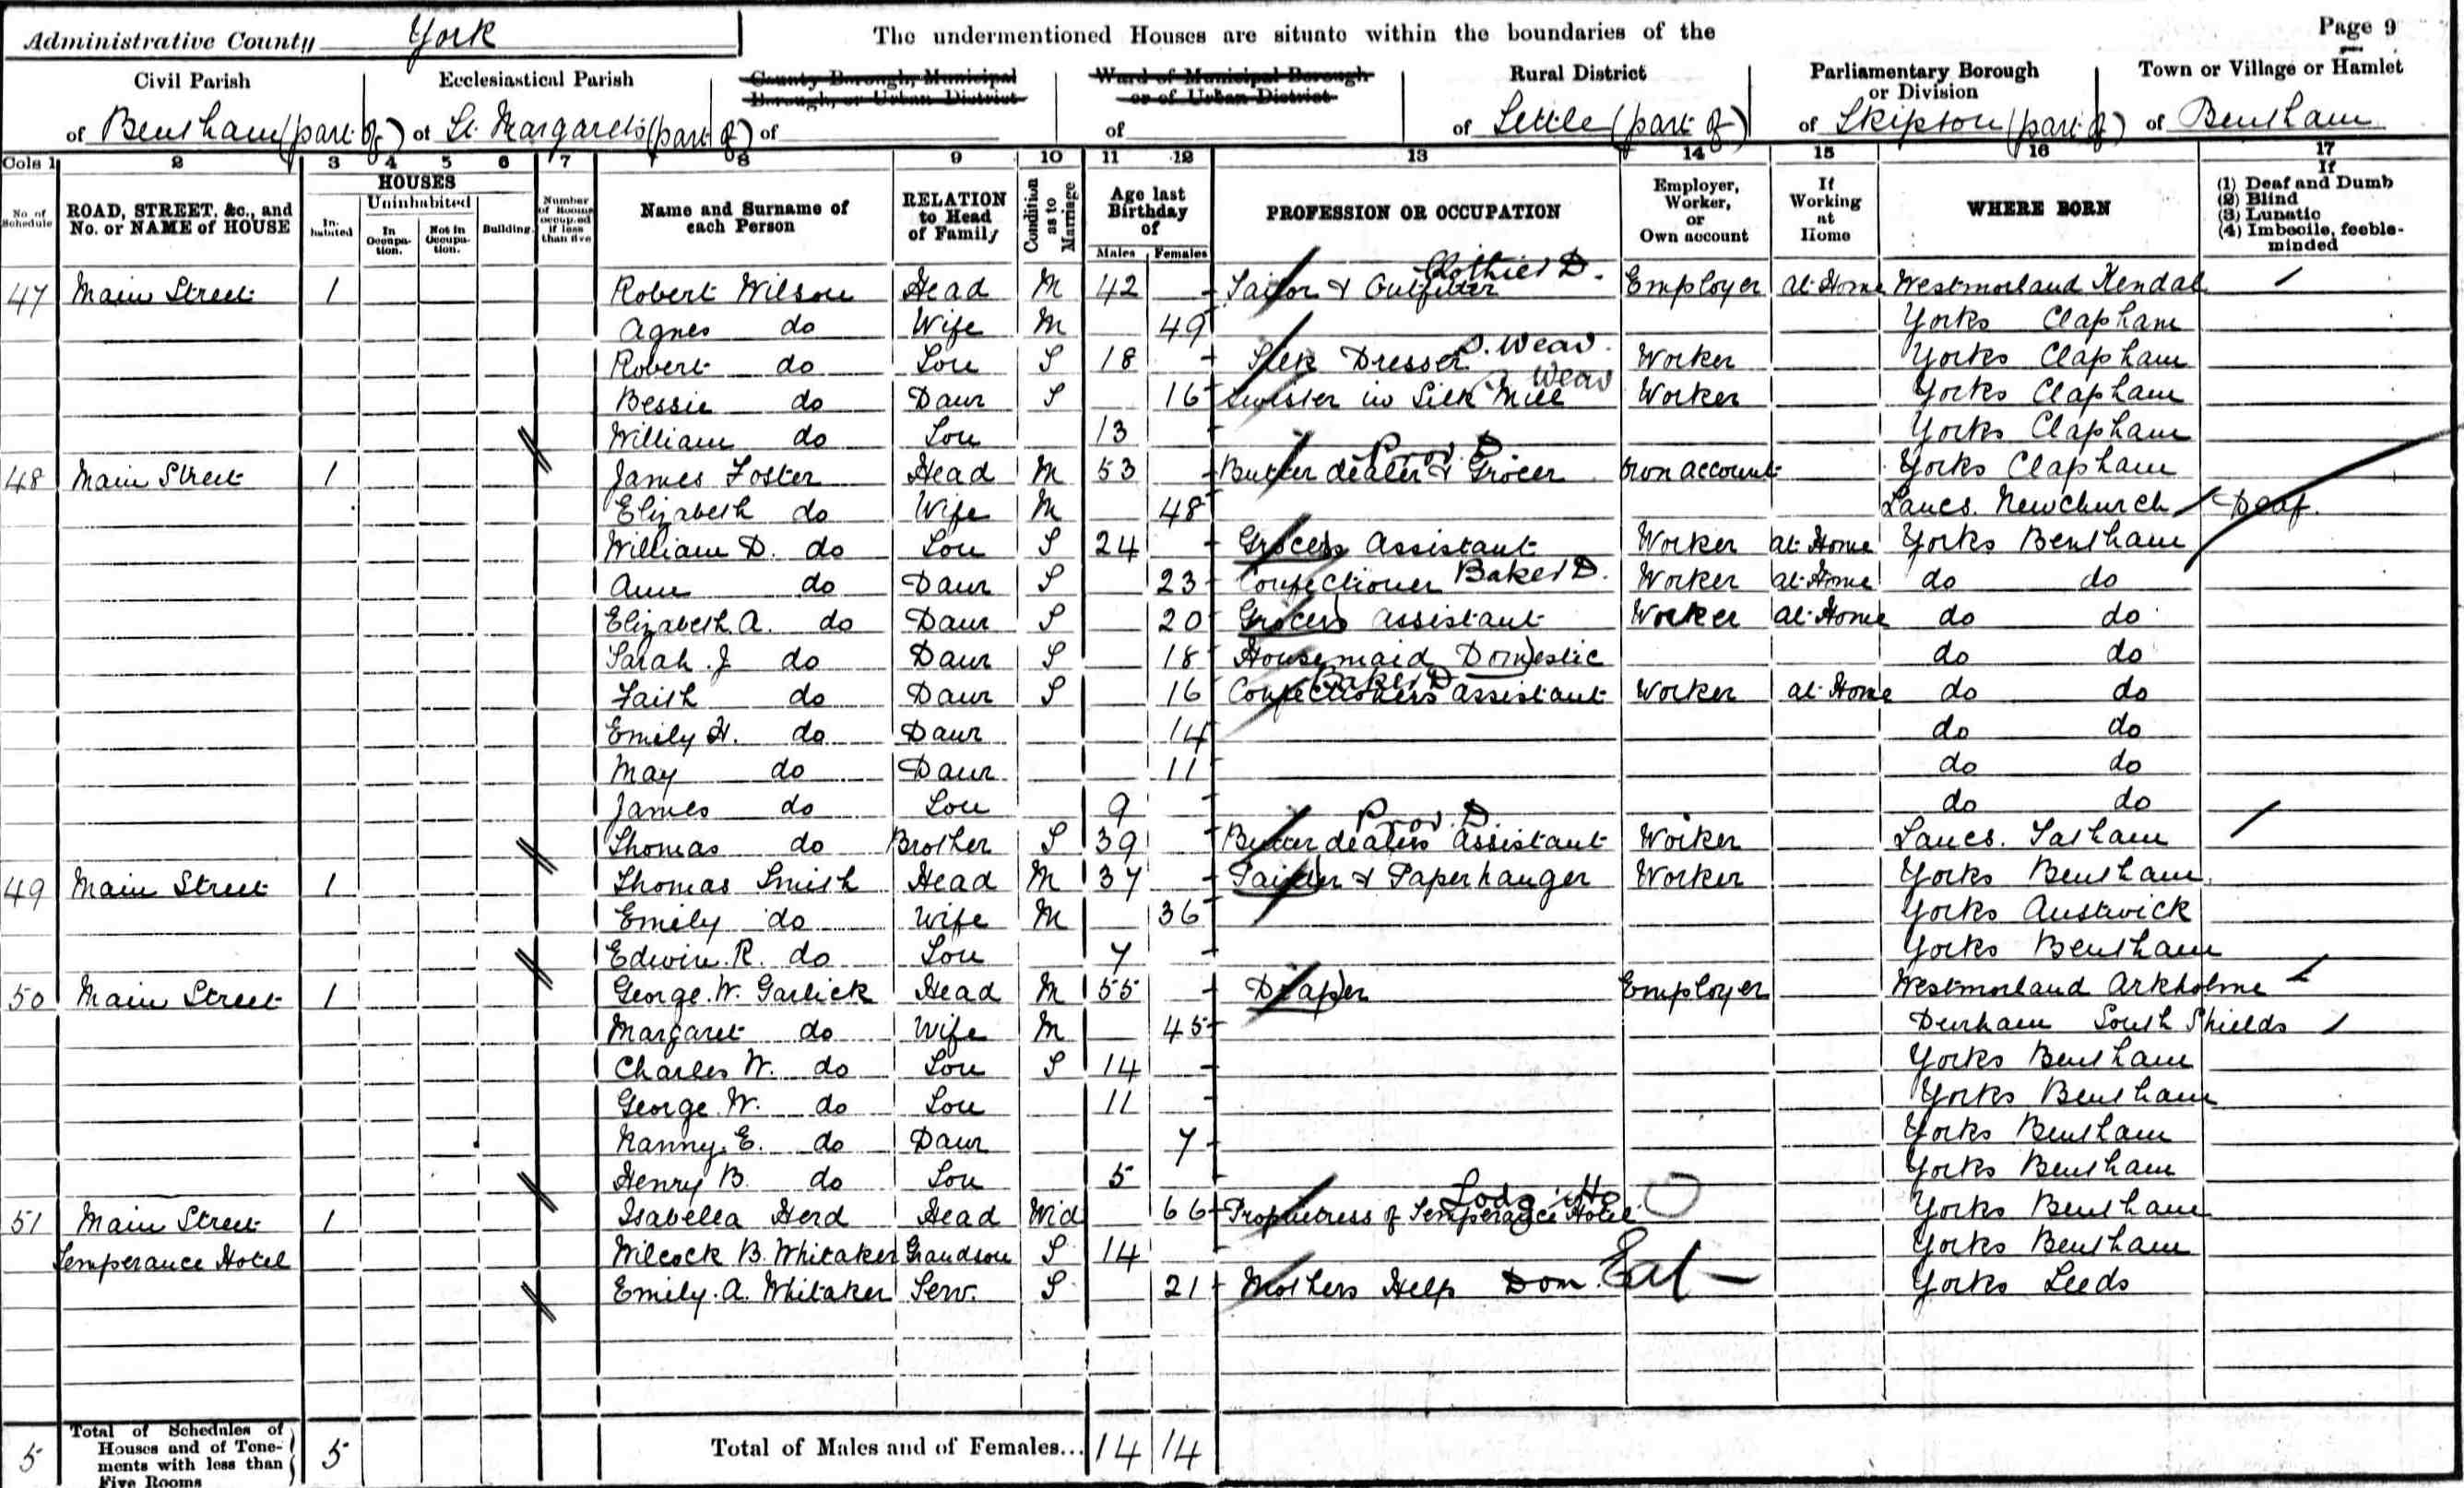 Administrative County York The undermentioned Houses are situate within the boundaries of the Page 9
Civil Parish Ecclesiastical Parish County Borough, Municipal Borough, or Urban District Ward of Municipal Borough or of Urban District Rural District Parliamentary Borough or Division Town or Village or Hamlet
of Bentham (part of) of St. Margaret's (part of) of of of Settle (part of) of Skipton (part of) of Bentham
Cols 1 2 3 4 5 6 7 8 9 10 11 12 13 14 15 16 17
No. of Schedule
ROAD, STREET, &c., and No. or NAME of HOUSE
HOUSES
Inhabited
Uninhabited
In Occupation.
Not in Occupation.
Building
Number of Rooms occupied if less than five
Name and Surname of each Person
RELATION to Head of Family
Condition as to Marriage
Age last Birthday of
Males Females
PROFESSION OR OCCUPATION
Employer, Worker, or Own account
If Working at Home
WHERE BORN
If
(1) Deaf and Dumb
(2) Blind
(3) Lunatic
(4) Imbecile, feeble-minded
Clothier D.
47 Main Street 1 Robert Wilson Head M 42 Tailor & Outfitter Employer at Home Westmorland Kendal
Agnes do Wife M 49 Yorks Clapham
S. Weav.
Robert do Son S 18 Silk Dresser Worker Yorks Clapham
Weav
Bessie do Daur S 16 Twister in Silk Mill Worker Yorks Clapham
William do Son 13 Yorks Clapham
Prov. D
48 Main Street 1 James Foster Head M 53 Butter dealer & Grocer own account Yorks Clapham
Elizabeth do Wife M 48 Lancs. Newchurch Deaf.
William D. do Son S 24 Grocers Assistant Worker at Home Yorks Bentham
Ann do Daur S 23 Confectioner Baker D. Worker at Home do do
Elizabeth A. do Daur S 20 Grocers assistant Worker at Home do do
Sarah J do Daur S 18 Housemaid Domestic do do
Baker D
Faith do Daur S 16 Confectioners assistant Worker at Home do do
Emily H. do Daur 14 do do
May do Daur 11 do do
James do Son 9 do do
Prov. D.
Thomas do Brother S 39 Butter dealers assistant Worker Lancs. Tatham
49 Main Street 1 Thomas Smith Head M 37 Painter & Paperhanger Worker Yorks Bentham
Emily do Wife M 36 Yorks Austwick
Edwin R. do Son 7 Yorks Bentham
50 Main Street 1 George W. Garlick Head M 55 Draper Employer Westmorland Arkholme
Margaret do Wife M 45 Durham South Shields
Charles W. do Son S 14 Yorks Bentham
George W. do Son 11 Yorks Bentham
Nanny E. do Daur 7 Yorks Bentham
Henry B. do Son 5 Yorks Bentham
Lodg. Ho
51 Main Street 1 Isabella Herd Head Wid 66 Proprietress of Temperance Hotel Yorks Bentham
Temperance Hotel Wilcock B. Whitaker Grandson S 14 Yorks Bentham
Emily A. Whitaker Serv. S 21 Mothers Help Dom. Yorks Leeds
5 Total of Schedules of Houses and of Tenements with less than Five Rooms 5 Total of Males and of Females... 14 14